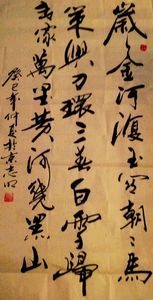 歲〻金河復玉關朝〻馬
策與刀環三春白雪歸
青冢萬里黄河繞黑山
癸巳年仲夏於京志明